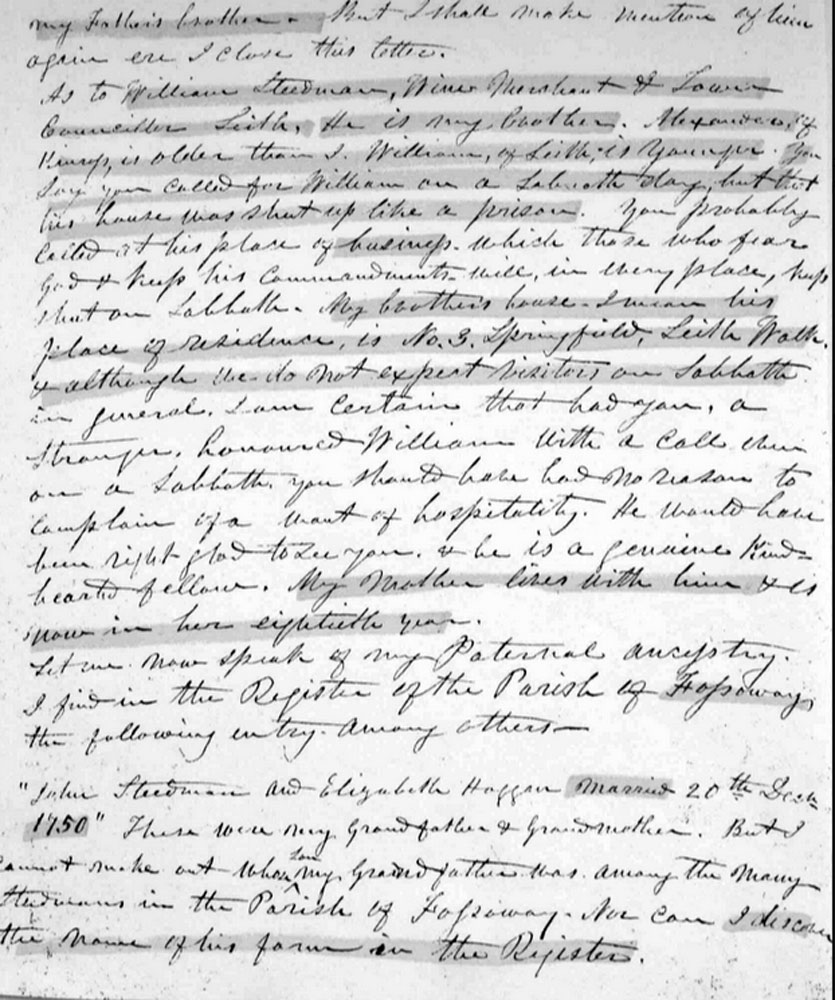 my Father's brother. But I shall make mention of him
again ere I close this letter.
As to William Steedman, Wine Merchant & Town
Councillor Leith, He is my brother. Alexander, of
Kings, is older than I. William, of Leith, is Younger. You
say you called for William on a Sabbath day, but that
his house was shut up like a prison. You probably
called at his place of business which those who fear
God & keep his Commandments will, in every place, keep
shut on Sabbath. My brother's house - I mean his
place of residence, is No. 3, Springfield, Leith Walk.
& although we do not expect visitors on Sabbath
in general. I am certain that had you, a
stranger, honoured William with a call even
on a Sabbath, you should have had no reason to
complain of a want of hospitality. He would have
been right glad to see you. & he is a genuine Kind=
hearted fellow. My Mother lives with him & is
now in her eightieth year.
Let me now speak of my Paternal ancestry.
I find in the Register of the Parish of Fossoway,
the following entry among others—
"John Steedman and Elizabeth Haggan married 20th Decr
1750" These were my Grandfather & Grandmother. But I
cannot make out whose son my Grandfather was among the many
Steedmans in the Parish of Fossoway. Nor can I discover
the name of his farm in the Register.